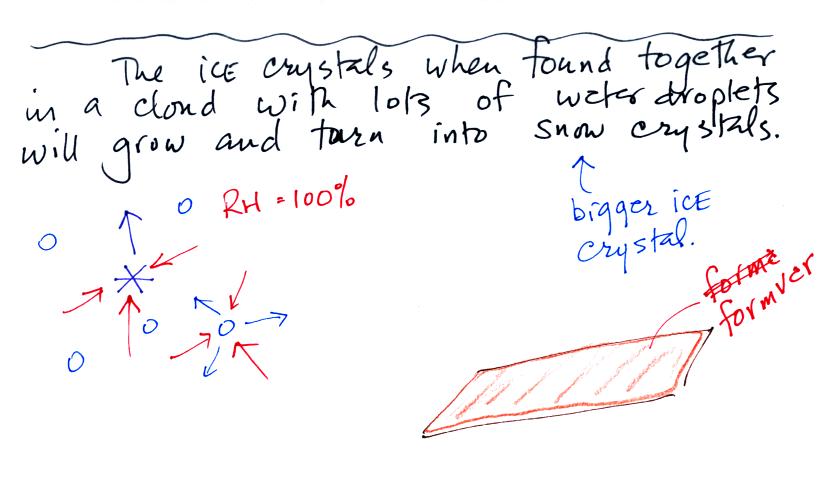 The ICE crystals when found together
in a cloud with lots of water droplets
will grow and turn into snow crystals.
RH = 100%
bigger ICE
crystal.
formvar